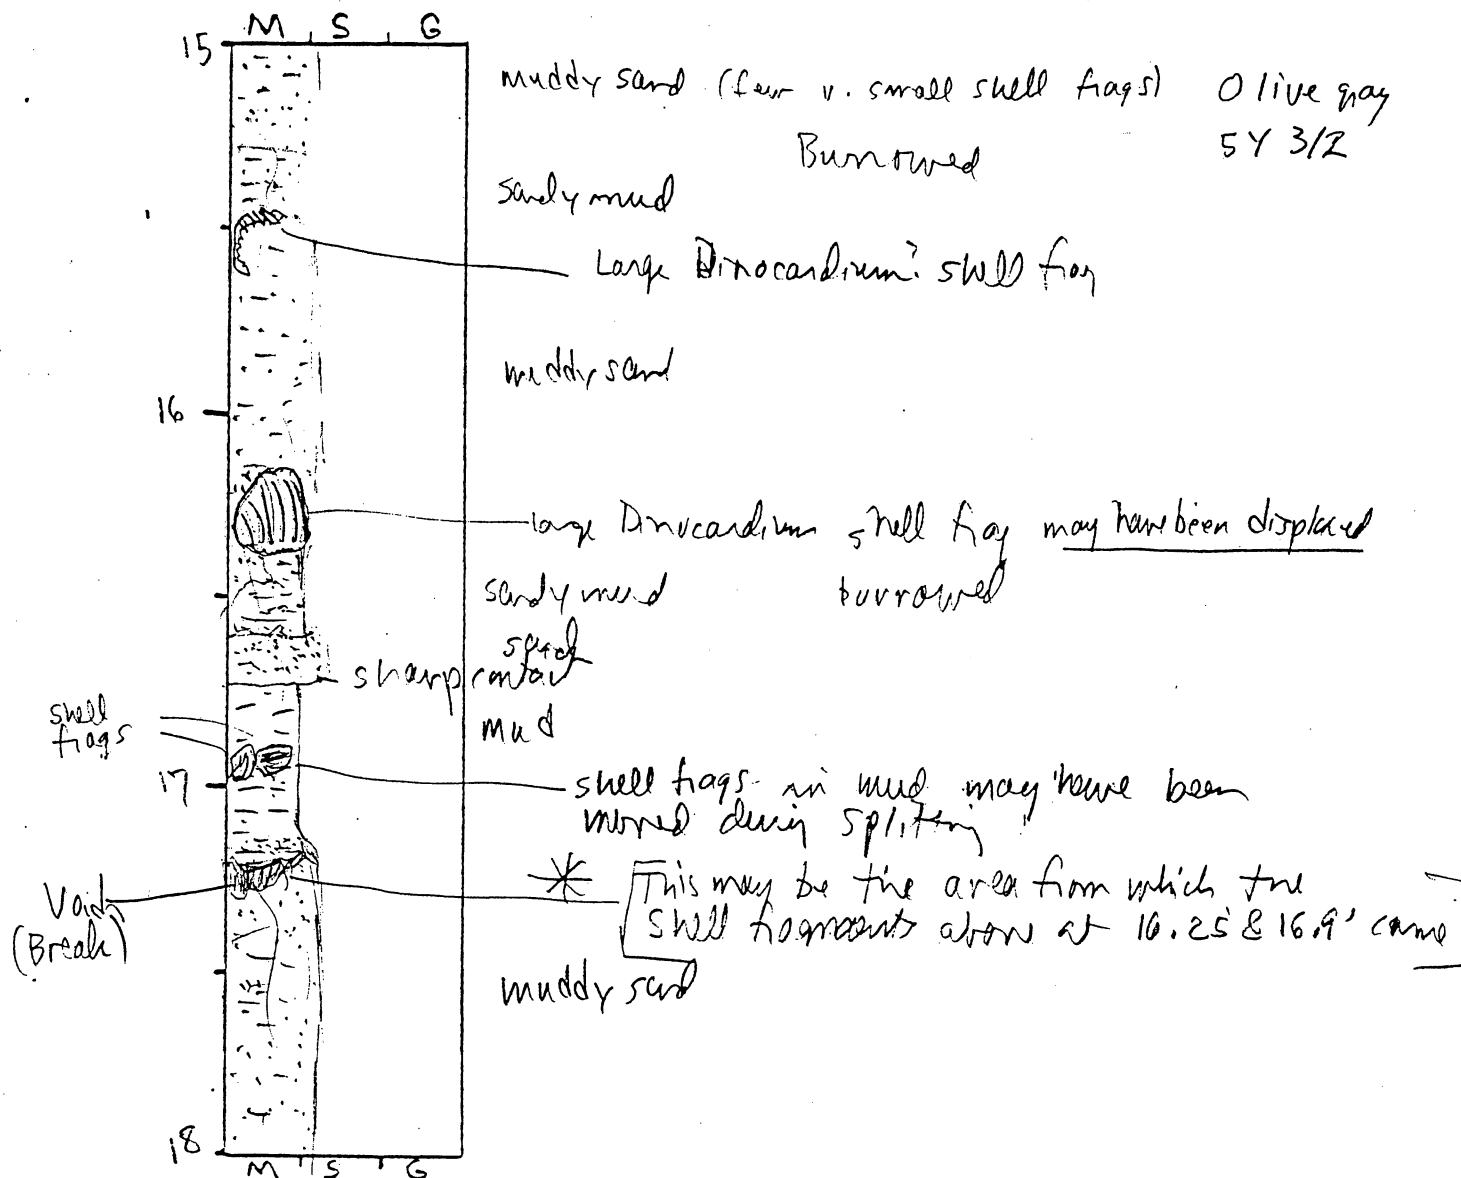 M S G
15
muddy sand (few v. small shell frags) Olive gray
5Y 3/2
Burrowed
sandy mud
Large Dinocardium? shell frag
muddy sand
16
large Dinocardium shell frag may have been displaced
sandy mud burrowed
sand
sharp contact
shell
frags
mud
17
shell frags in mud may have been
moved during splitting
Void
(Break)
* This may be the area from which the
shell fragments above at 16.25 & 16.9' came
muddy sand
18
M S G